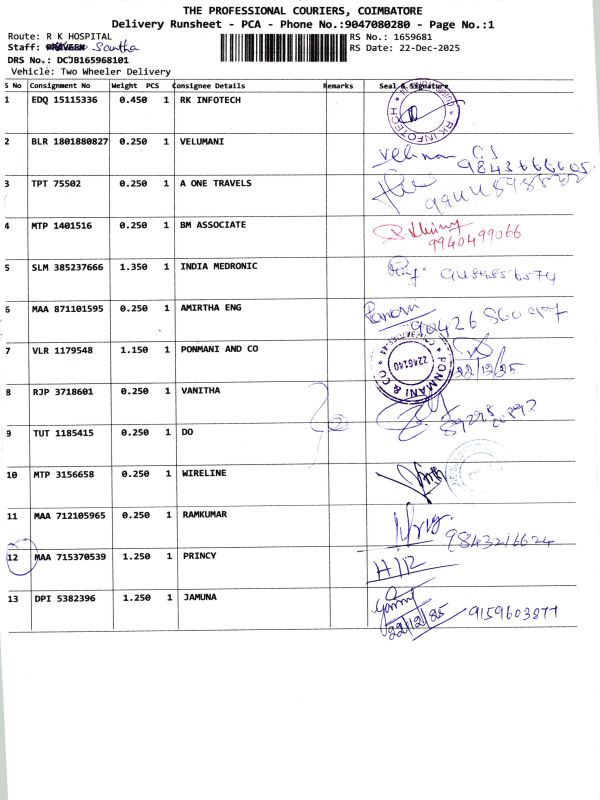 THE PROFESSIONAL COURIERS, COIMBATORE
Delivery Runsheet - PCA - Phone No.:9047080280 - Page No.:1
Route: R K HOSPITAL RS No.: 1659681
Staff: Santha RS Date: 22-Dec-2025
DRS No.: DCJB165968101
Vehicle: Two Wheeler Delivery
S No Consignment No Weight PCS Consignee Details Remarks Seal & Signature
1 EDQ 15115336 0.450 1 RK INFOTECH
2 BLR 1801880827 0.250 1 VELUMANI
3 TPT 75502 0.250 1 A ONE TRAVELS
4 MTP 1401516 0.250 1 BM ASSOCIATE
9940499066
5 SLM 385237666 1.350 1 INDIA MEDRONIC
6 MAA 871101595 0.250 1 AMIRTHA ENG
7 VLR 1179548 1.150 1 PONMANI AND CO PONMANI & CO 2246140
22/12/25
8 RJP 3718601 0.250 1 VANITHA
9 TUT 1185415 0.250 1 DO
10 MTP 3156658 0.250 1 WIRELINE
11 MAA 712105965 0.250 1 RAMKUMAR
9843216624
12 MAA 715370539 1.250 1 PRINCY
13 DPI 5382396 1.250 1 JAMUNA
22/12/25 9159603877